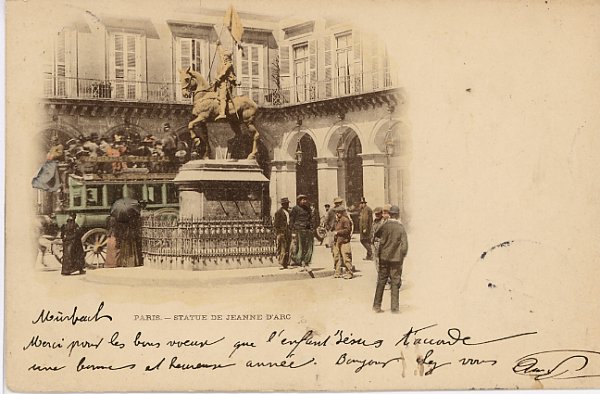 PARIS. — STATUE DE JEANNE D'ARC
Mürbach
Merci pour les bons voeux que l'enfant Jésus t'accorde
une bonne et heureuse année. Bonjour chez vous